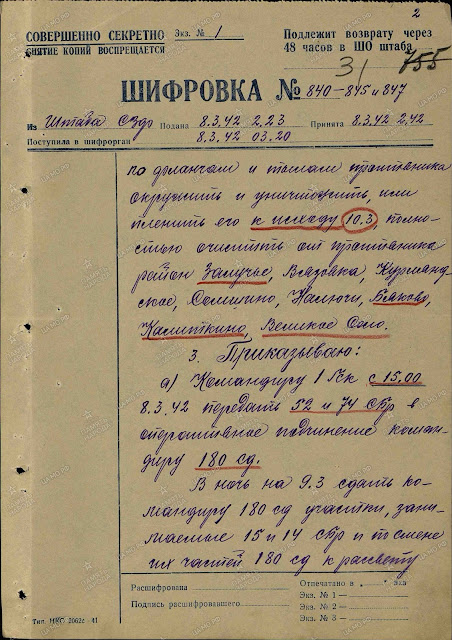 2
СОВЕРШЕННО СЕКРЕТНО
СНЯТИЕ КОПИЙ ВОСПРЕЩАЕТСЯ
Экз. № 1
Подлежит возврату через
48 часов в ШО штаба
31 755
ШИФРОВКА № 840-845 и 847
Из Штаба СЗФ Подана 8.3.42 2.23 Принята 8.3.42 2.42
Поступила в шифрорган 8.3.42 03.20
по флангам и тылам противника
окружить и уничтожить, или
пленить его к исходу 10.3, полно-
стью очистить от противника
район Залучье, Вязовка, Курланд-
ское, Сомшино, Налючи, Бяково,
Калиткино, Великое Село.
3. Приказываю:
а) Командиру 1 Гск с 15.00
8.3.42 передать 52 и 74 сбр в
оперативное подчинение коман-
диру 180 сд.
В ночь на 9.3 сдать ко-
мандиру 180 сд участки, зани-
маемые 15 и 14 сбр и по смене
их частей 180 сд к рассвету
Расшифрована
Подпись расшифровавшего
Отпечатано в „ “ экз.
Экз. № 1 —
Экз. № 2 —
Экз. № 3 —
Тип. НКО 2062с-41